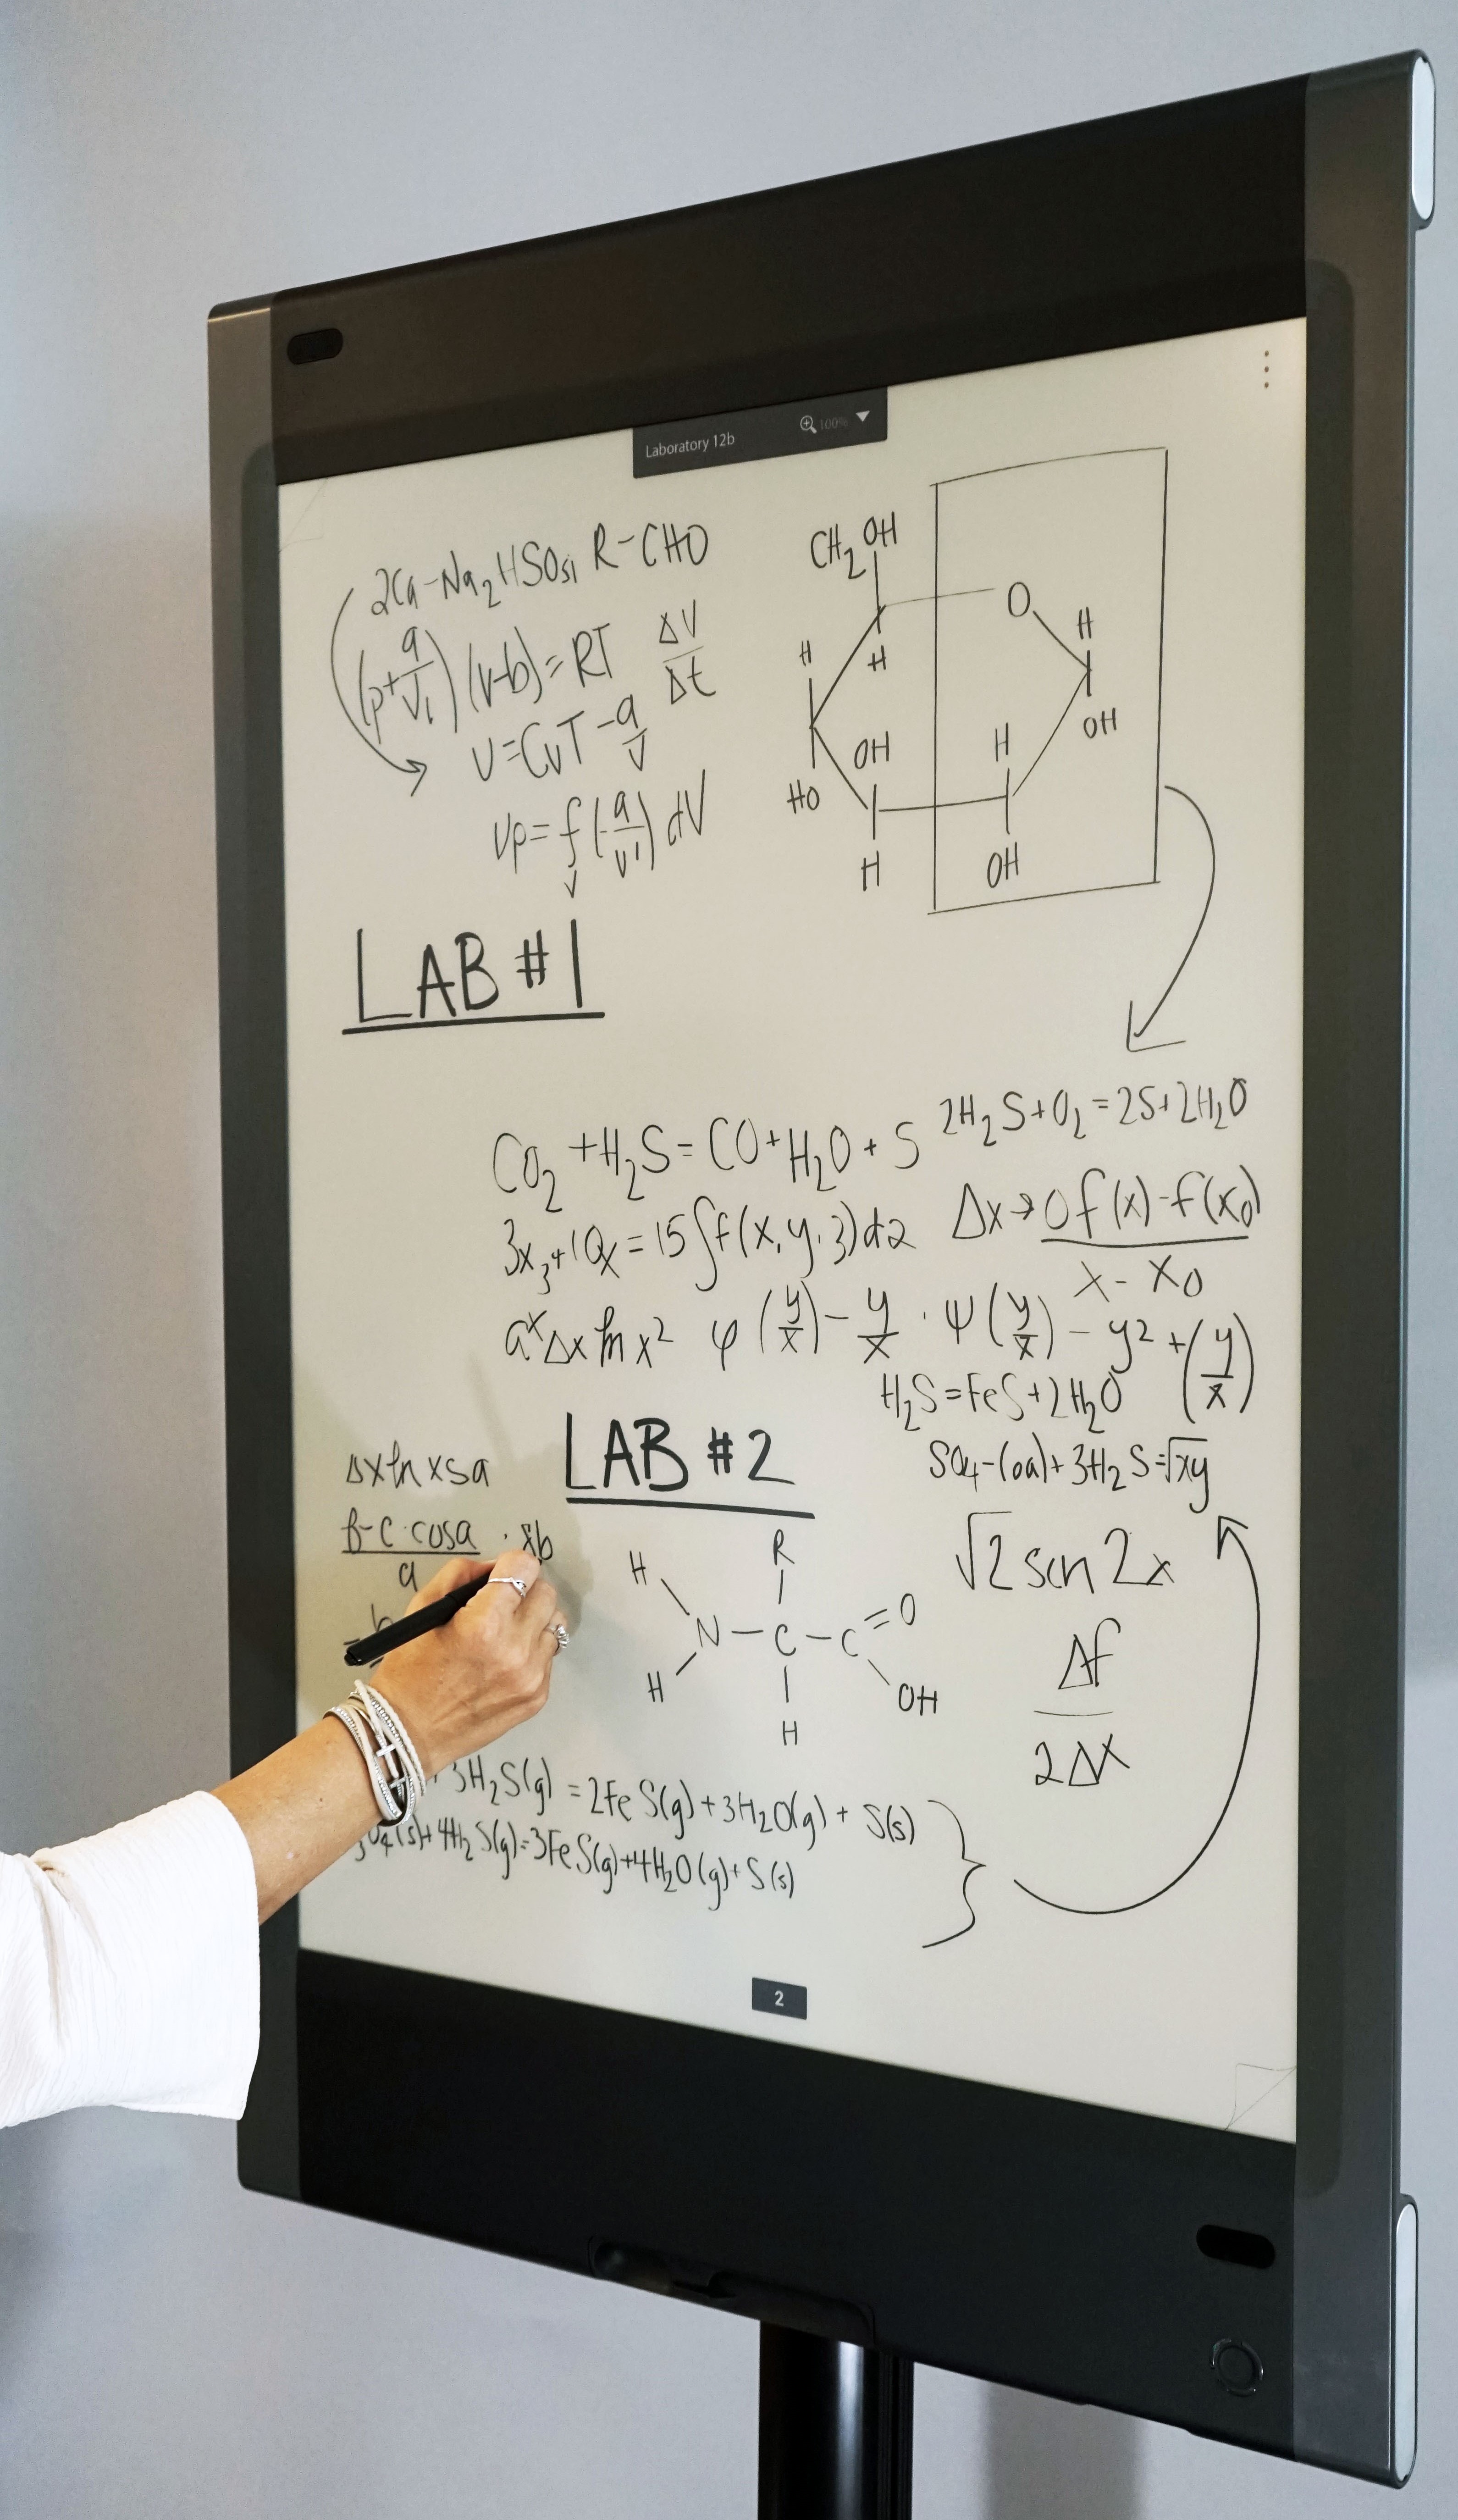 Laboratory 12b 100%
2Ca-Na₂HSOsi R-CHO
(p+a/V₁)(v-b)=RT ΔV/Δt
U=CvT-a/v
Up=f(-a/v¹)dV
v
CH₂OH
O
H
H
H
OH
H
OH
HO
H
OH
LAB #1
CO₂+H₂S=CO+H₂O+S 2H₂S+O₂=2S+2H₂O
3x₃+10x=15∫f(x,y.3)dz Δx→0 f(x)-f(x₀)/x-x₀
aˣΔx ln x² φ(y/x)-y/x·ψ(y/x)-y²+(y/x)
H₂S=FeS+2H₂O
LAB #2
SO₄-(oa)+3H₂S=√xy
Δx ln x5a
b-c·cosa/a
√2 sin 2x
H
R
N-C-C=O
H
OH
H
Δf/2Δx
+3H₂S(g)=2FeS(g)+3H₂O(g)+S(s)
₃O₄(s)+4H₂S(g)=3FeS(g)+4H₂O(g)+S(s)
2